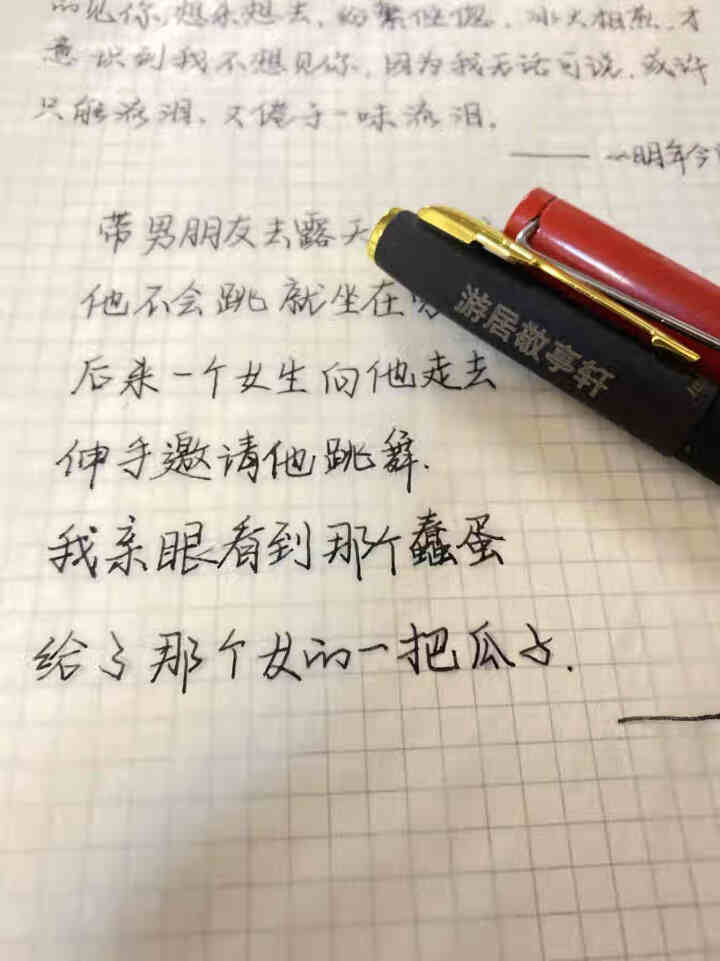 的见你,想来想去,
意识到我不想见你,因为我无话可说,或许
只能流泪,又倦于一味流泪。
——明年今
带男朋友去露天
他不会跳就坐在
后来一个女生向他走去
伸手邀请他跳舞.
我亲眼看到那个蠢蛋
给了那个女的一把瓜子.
游居敬亭轩